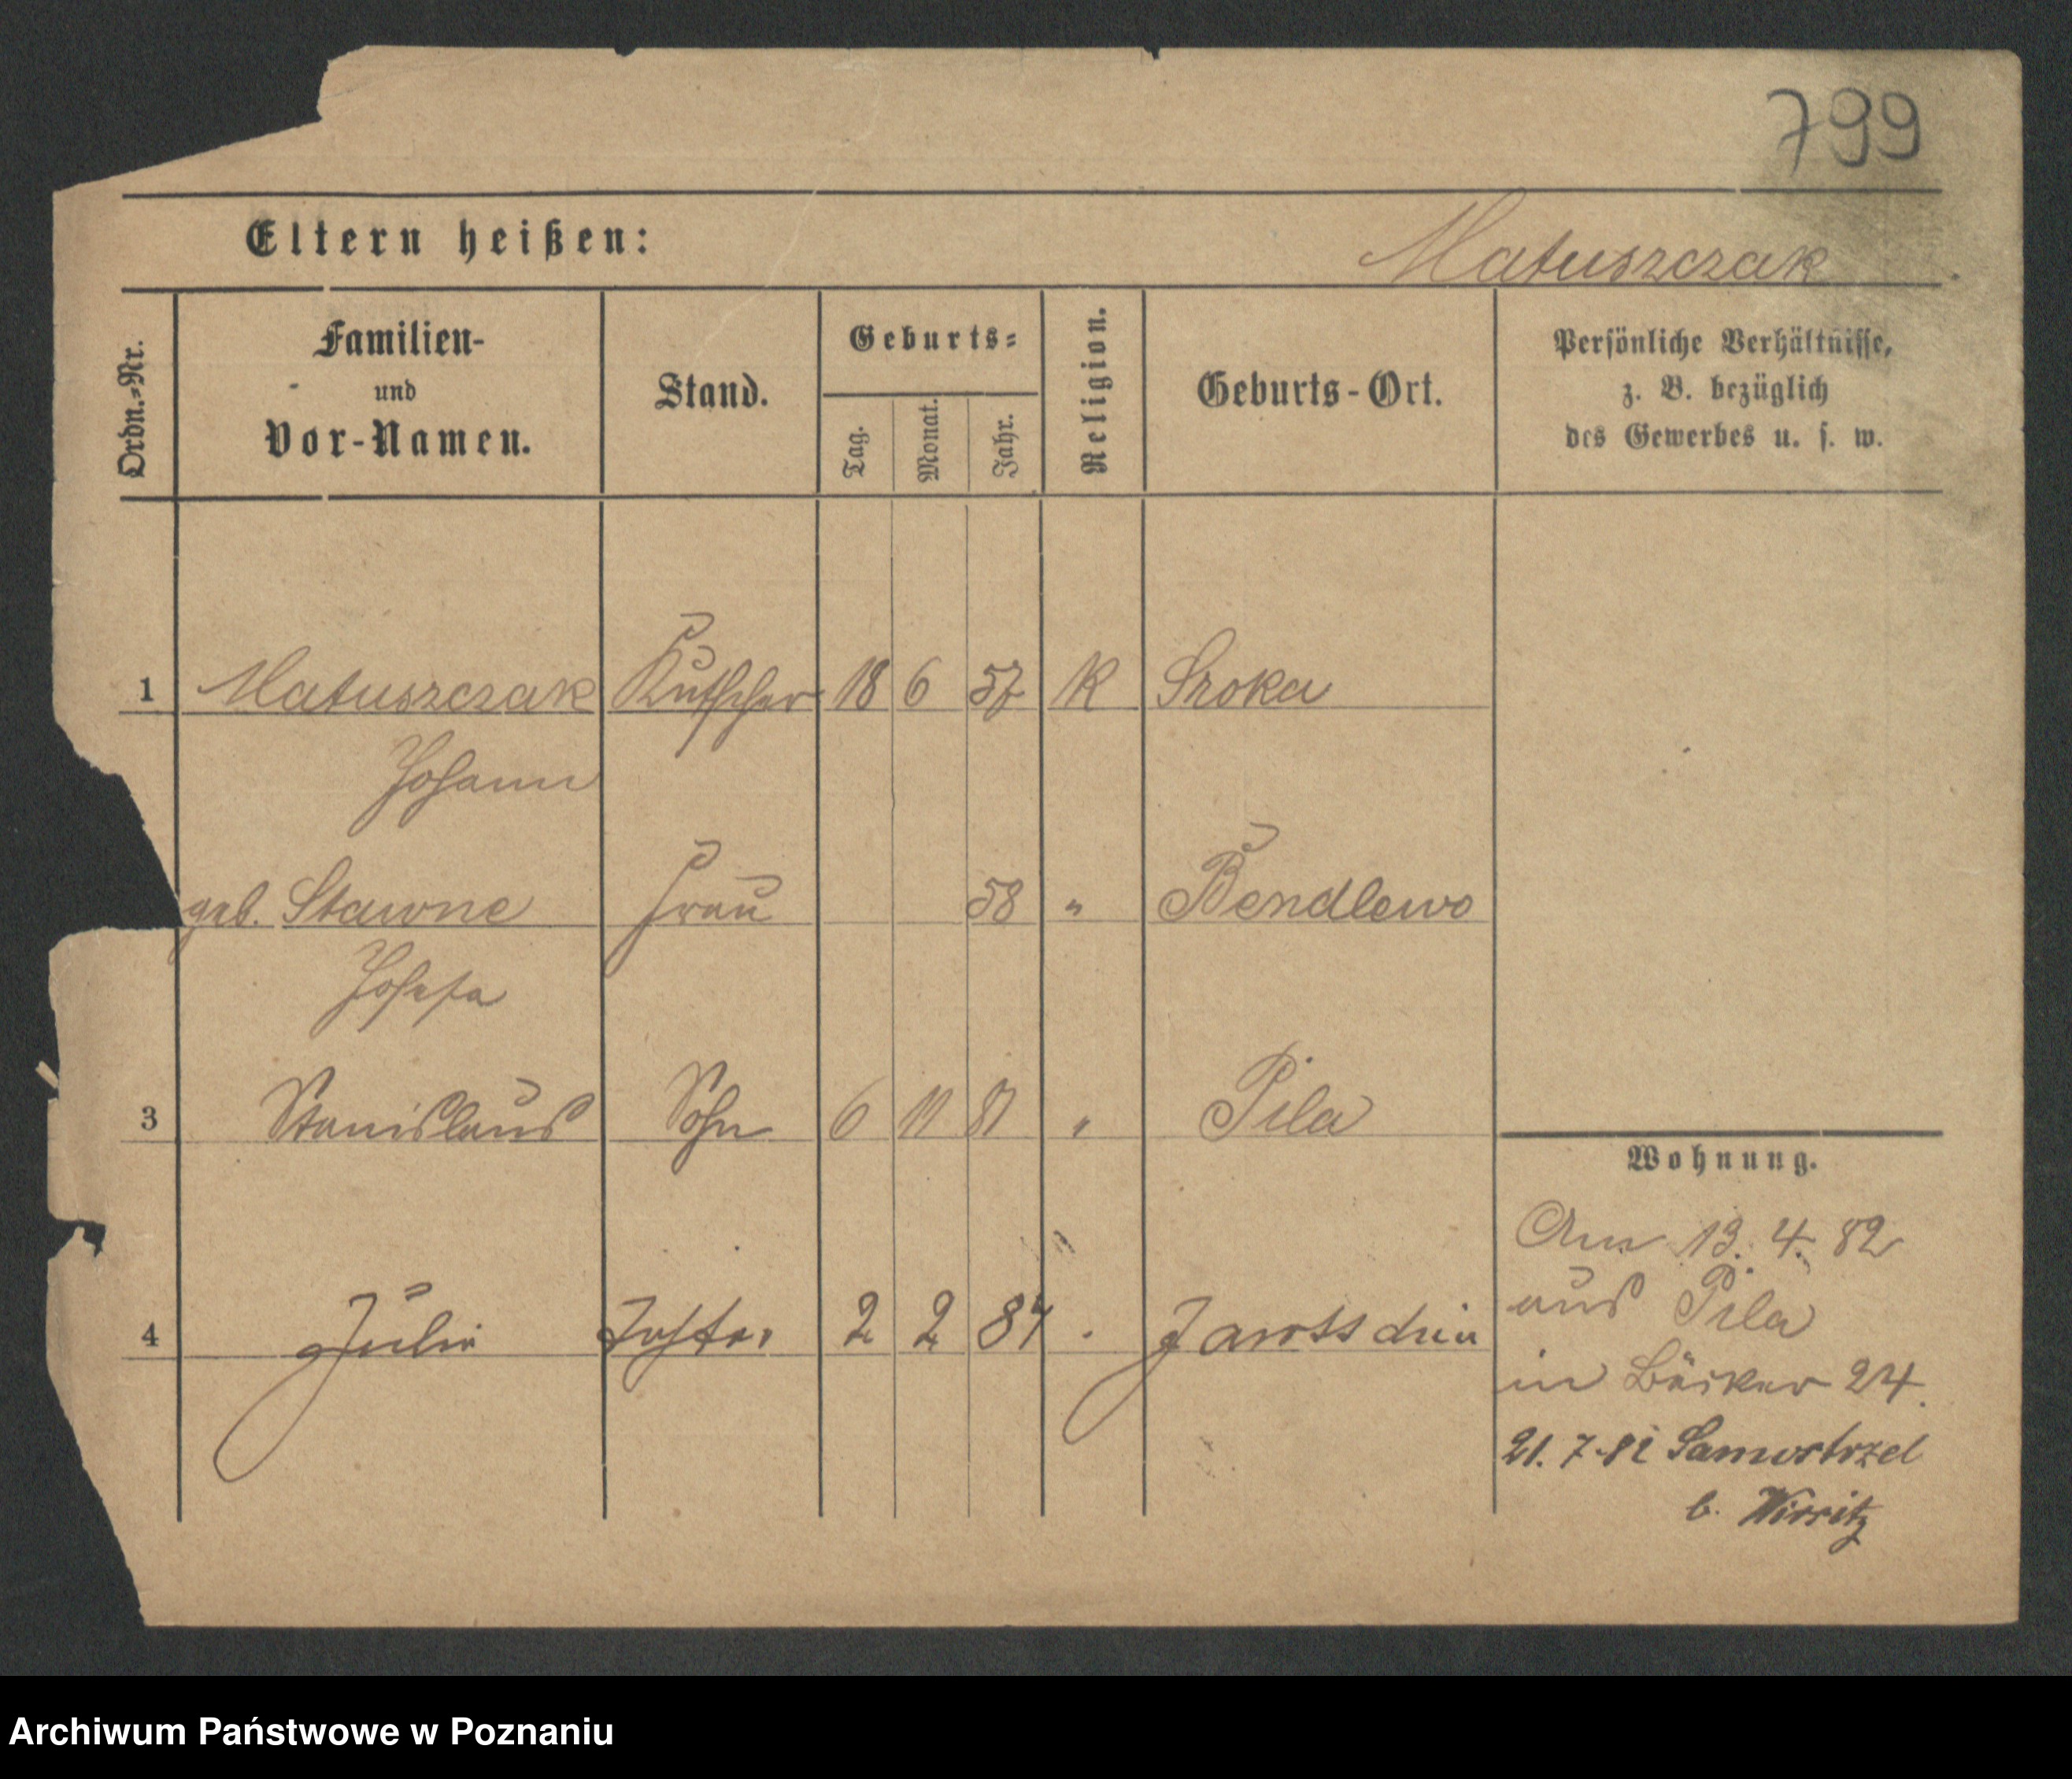 799
Eltern heißen: Matuszczak
Ordn.-Nr. Familien- und Vor-Namen. Stand. Geburts- Tag. Monat. Jahr. Religion. Geburts-Ort. Persönliche Verhältnisse, z. B. bezüglich des Gewerbes u. s. w.
1 Matuszczak Kutscher 18 6 57 K Sroka
Johann
geb. Stawne Frau 58 " Bendlewo
Josefa
3 Stanislaus Sohn 6 11 81 " Pila
Wohnung.
4 Julie 2 2 84 Jarotschin
Am 13. 4. 82
aus Pila
in Bäcker 24.
21. 7. 82 Samostrzel
b. Wirsitz
Archiwum Państwowe w Poznaniu